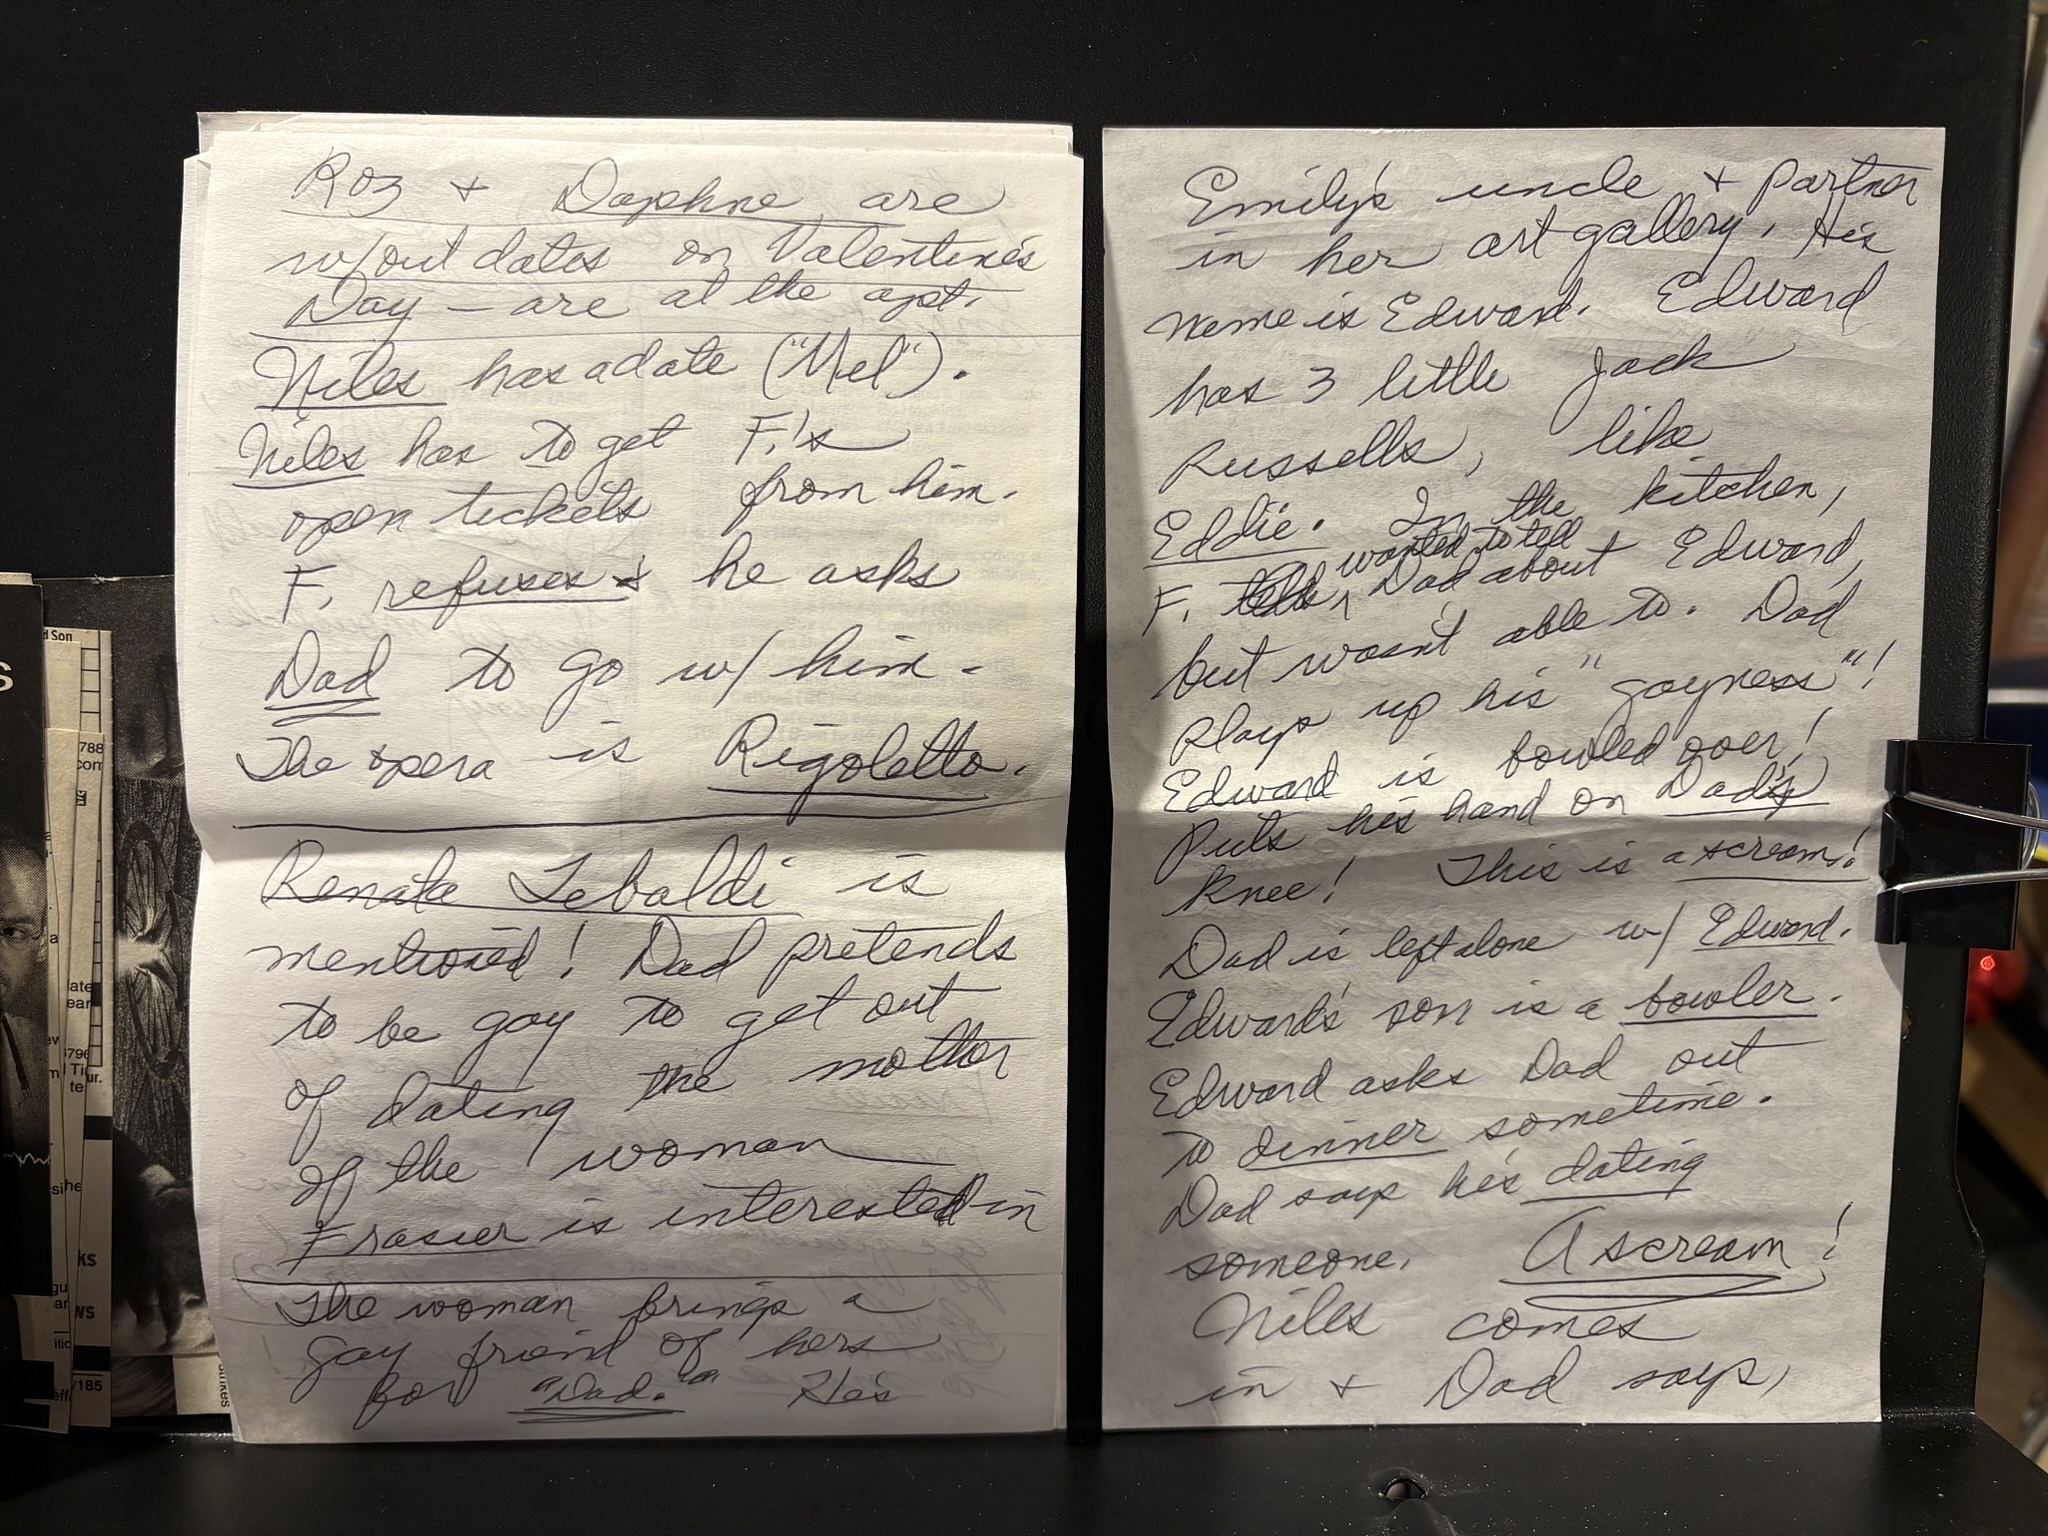 Roz & Daphne are
w/out dates on Valentine's
Day – are at the apt.
Niles has a date ("Mel").
Niles has to get F.'s
open tickets from him.
F. refuses & he asks
Dad to go w/ him.
The opera is Rigoletto.
Renata Tebaldi is
mentioned! Dad pretends
to be gay to get out
of dating the mother
of the woman
Frasier is interested in
The woman brings a
gay friend of hers
for "Dad." He's
Emily's uncle & partner
in her art gallery. His
name is Edward. Edward
has 3 little Jack
Russells, like
Eddie. In the kitchen,
wanted to tell
F. Dad about Edward,
but wasn't able to. Dad
plays up his "gayness"!
Edward is bowled over!
Puts his hand on Dad's
knee! This is a scream!
Dad is left alone w/ Edward.
Edward's son is a bowler.
Edward asks Dad out
to dinner sometime.
Dad says he's dating
someone. A scream!
Niles comes
in & Dad says,
d Son
S
788
com
a
late
ear
796
Ti
ur.
te
m
si
he
KS
gu
ar
WS
itic
eff
/185